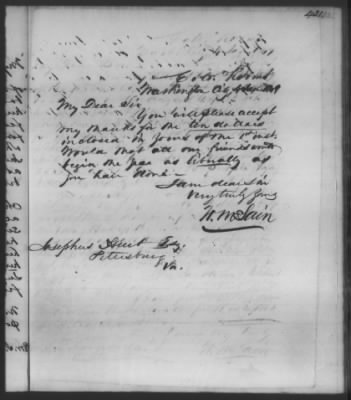 Col. Rooms
Washington City
My Dear Sir,
You will please accept
my thanks for the ten dollars
inclosed in yours of the 1st inst.
Would that all our friends would
begin the year as liberally as
you have done.
I am dear sir
Very truly yours
W. McLain
Josephus Esq.
Petersburg
Va.